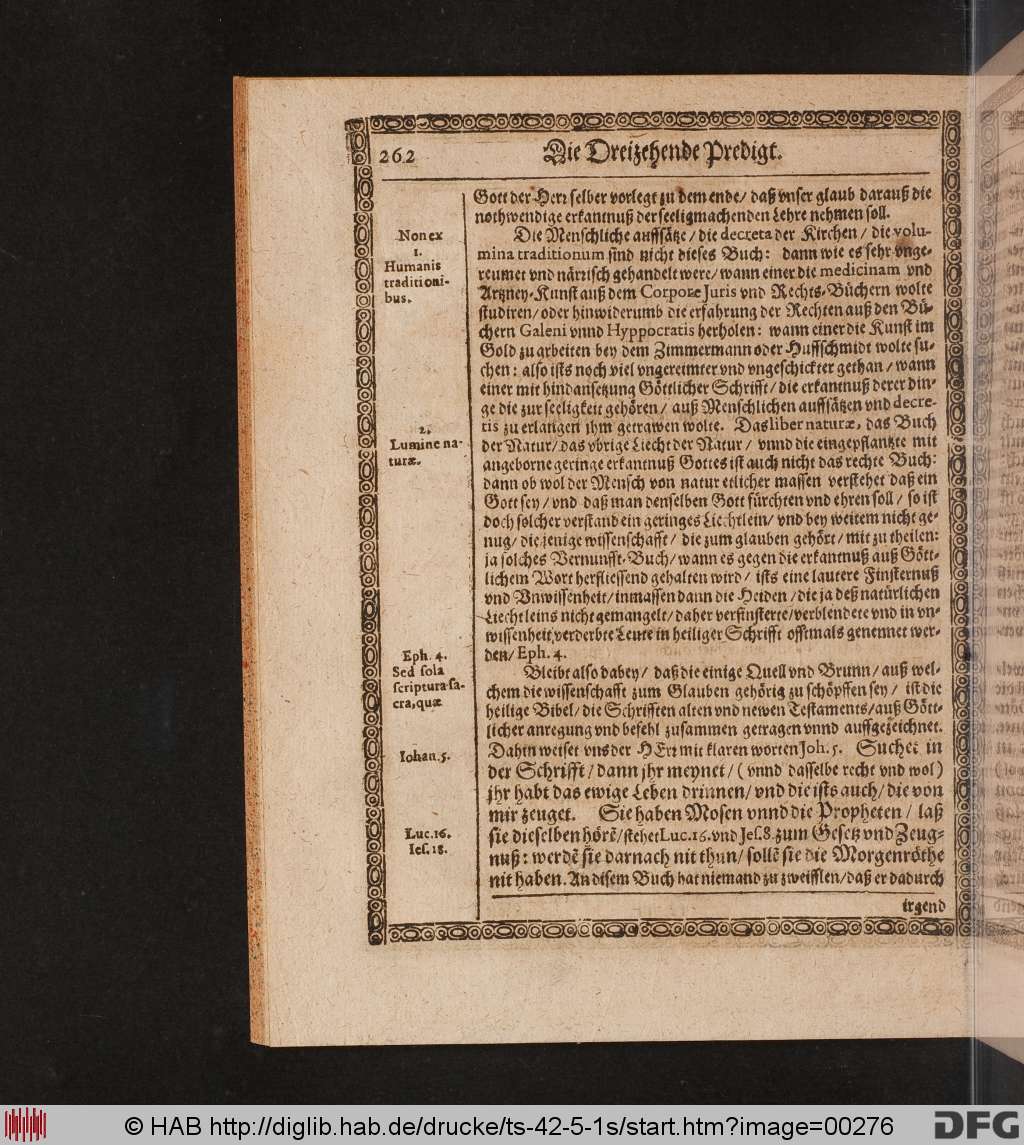 262
Die Dreizehende Predigt.
Gott der Herr selber vorlegt zu dem ende/ daß vnser glaub darauß die
nothwendige erkantnuß der seeligmachenden Lehre nehmen soll.
Non ex
1.
Humanis
traditioni-
bus.
Die Menschliche auffsätze/ die decreta der Kirchen/ die volu-
mina traditionum sind nicht dieses Buch: dann wie es sehr vnge-
reumet vnd närrisch gehandelt were/ wann einer die medicinam vnd
Artzney-Kunst auß dem Corpore Juris vnd Rechts-Büchern wolte
studiren/ oder hinwiderumb die erfahrung der Rechten auß den Bü-
chern Galeni vnnd Hyppocratis herholen: wann einer die Kunst im
Gold zu arbeiten bey dem Zimmermann oder Huffschmidt wolte su-
chen: also ists noch viel vngereimter vnd vngeschickter gethan/ wann
einer mit hindansetzung Göttlicher Schrifft/ die erkantnuß derer din-
ge die zur seeligkeit gehören/ auß Menschlichen auffsätzen vnd decre-
tis zu erlangen jhm getrawen wolte. Das liber naturæ, das Buch
2.
Lumine na-
turæ.
der Natur/ das vbrige Liecht der Natur/ vnnd die eingepflantzte mit
angeborne geringe erkantnuß Gottes ist auch nicht das rechte Buch:
dann ob wol der Mensch von natur etlicher massen verstehet daß ein
Gott sey/ vnd daß man denselben Gott fürchten vnd ehren soll/ so ist
doch solcher verstand ein geringes Liechtlein/ vnd bey weitem nicht ge-
nug/ diejenige wissenschafft/ die zum glauben gehört/ mit zu theilen:
ja solches Vernunfft-Buch/ wann es gegen die erkantnuß auß Gött-
lichem Wort herfliessend gehalten wird/ ists eine lautere Finsternuß
vnd Vnwissenheit/ inmassen dann die Heiden/ die ja deß natürlichen
Liechtleins nicht gemangelt/ daher verfinsterte/ verblendete vnd in vn-
wissenheit verderbte Leute in heiliger Schrifft offtmals genennet wer-
den/ Eph. 4.
Eph. 4.
Sed sola
scriptura sa-
cra, quæ
Bleibt also dabey/ daß die einige Quell vnd Brunn/ auß wel-
chem die wissenschafft zum Glauben gehörig zu schöpffen sey/ ist die
heilige Bibel/ die Schrifften alten vnd newen Testaments/ auß Gött-
licher anregung vnd befehl zusammen getragen vnnd auffgezeichnet.
Iohan. 5.
Dahin weiset vns der HErr mit klaren worten Joh. 5. Suchet in
der Schrifft/ dann jhr meynet/ (vnnd dasselbe recht vnd wol)
jhr habt das ewige Leben drinnen/ vnd die ists auch/ die von
mir zeuget. Sie haben Mosen vnnd die Propheten/ laß
Luc. 16.
Ies. 18.
sie dieselben hörẽ/ stehet Luc. 16. vnd Jes. 8. zum Gesetz vnd Zeug-
nuß: werdẽ sie darnach nit thun/ sollẽ sie die Morgenröthe
nit haben. An disem Buch hat niemand zu zweifflen/ daß er dadurch
irgend
© HAB http://diglib.hab.de/drucke/ts-42-5-1s/start.htm?image=00276
DFG